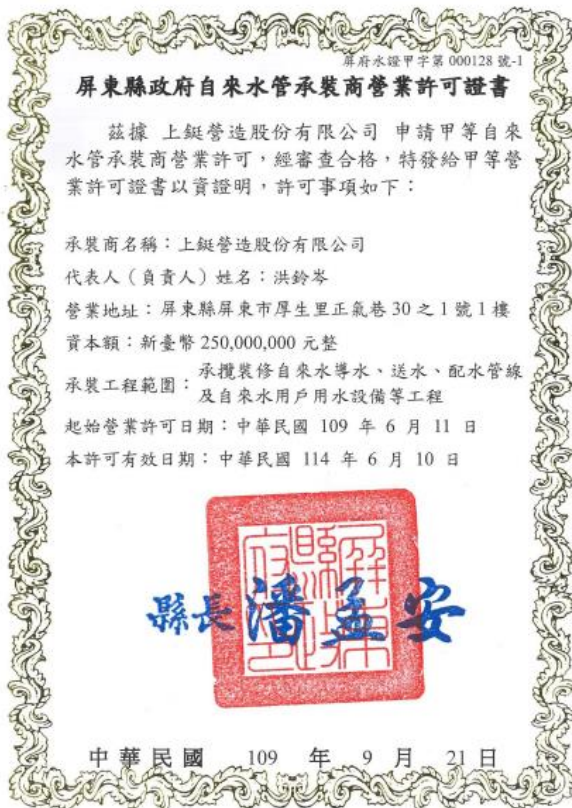 屏府水證甲字第 000128 號-1
屏東縣政府自來水管承裝商營業許可證書
茲據 上鋌營造股份有限公司 申請甲等自來
水管承裝商營業許可，經審查合格，特發給甲等營
業許可證書以資證明，許可事項如下：
承裝商名稱：上鋌營造股份有限公司
代表人（負責人）姓名：洪鈴岑
營業地址：屏東縣屏東市厚生里正氣巷 30 之 1 號 1 樓
資本額：新臺幣 250,000,000 元整
承裝工程範圍：承攬裝修自來水導水、送水、配水管線
及自來水用戶用水設備等工程
起始營業許可日期：中華民國 109 年 6 月 11 日
本許可有效日期：中華民國 114 年 6 月 10 日
屏東縣政府印
縣長 潘孟安
中華民國 109 年 9 月 21 日